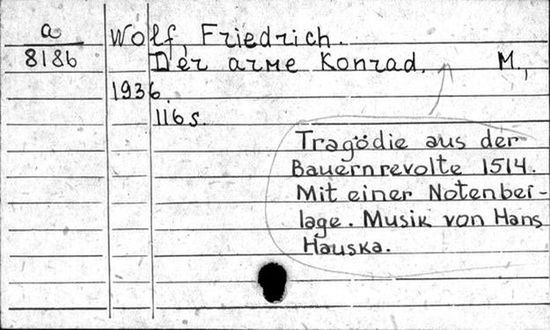 a
8186
Wolf, Friedrich.
Der arme Konrad. M.,
1936.
116 s.
Tragödie aus der
Bauernrevolte 1514.
Mit einer Notenbei-
lage. Musik von Hans
Hauska.